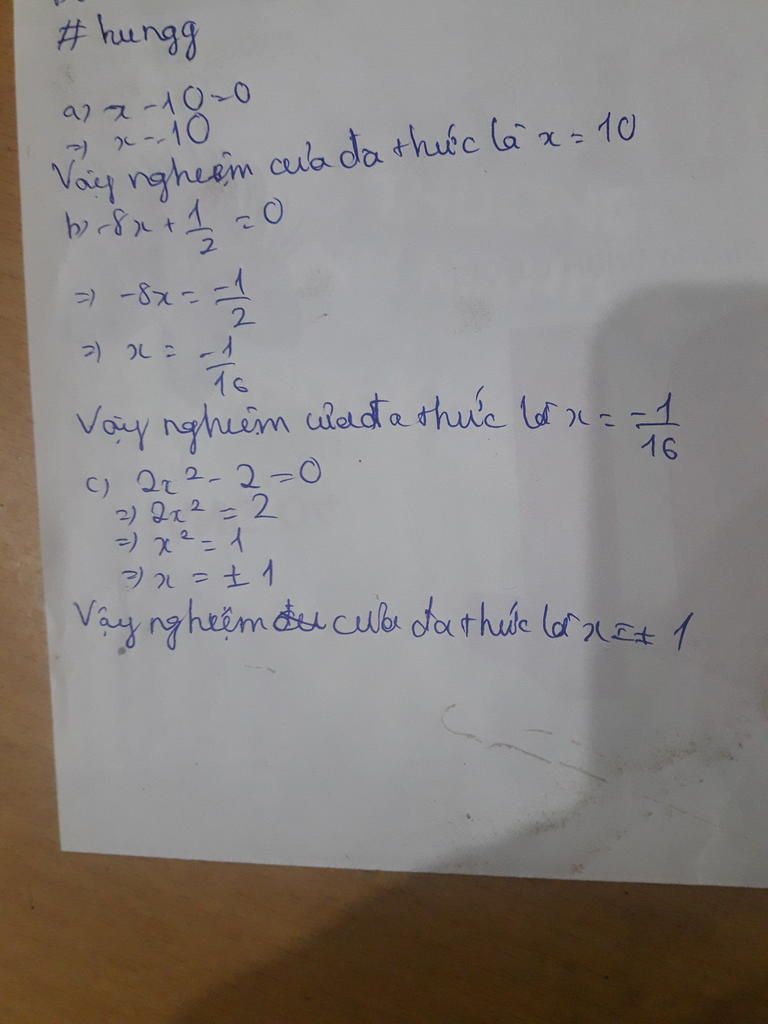 # hungg
a) x - 10 = 0
=) x = 10
Vậy nghiệm của đa thức là x = 10
b) -8x + 1/2 = 0
=) -8x = -1/2
=) x = -1/16
Vậy nghiệm của đa thức là x = -1/16
c) 2x² - 2 = 0
=) 2x² = 2
=) x² = 1
=) x = ± 1
Vậy nghiệm của đa thức là x = ± 1